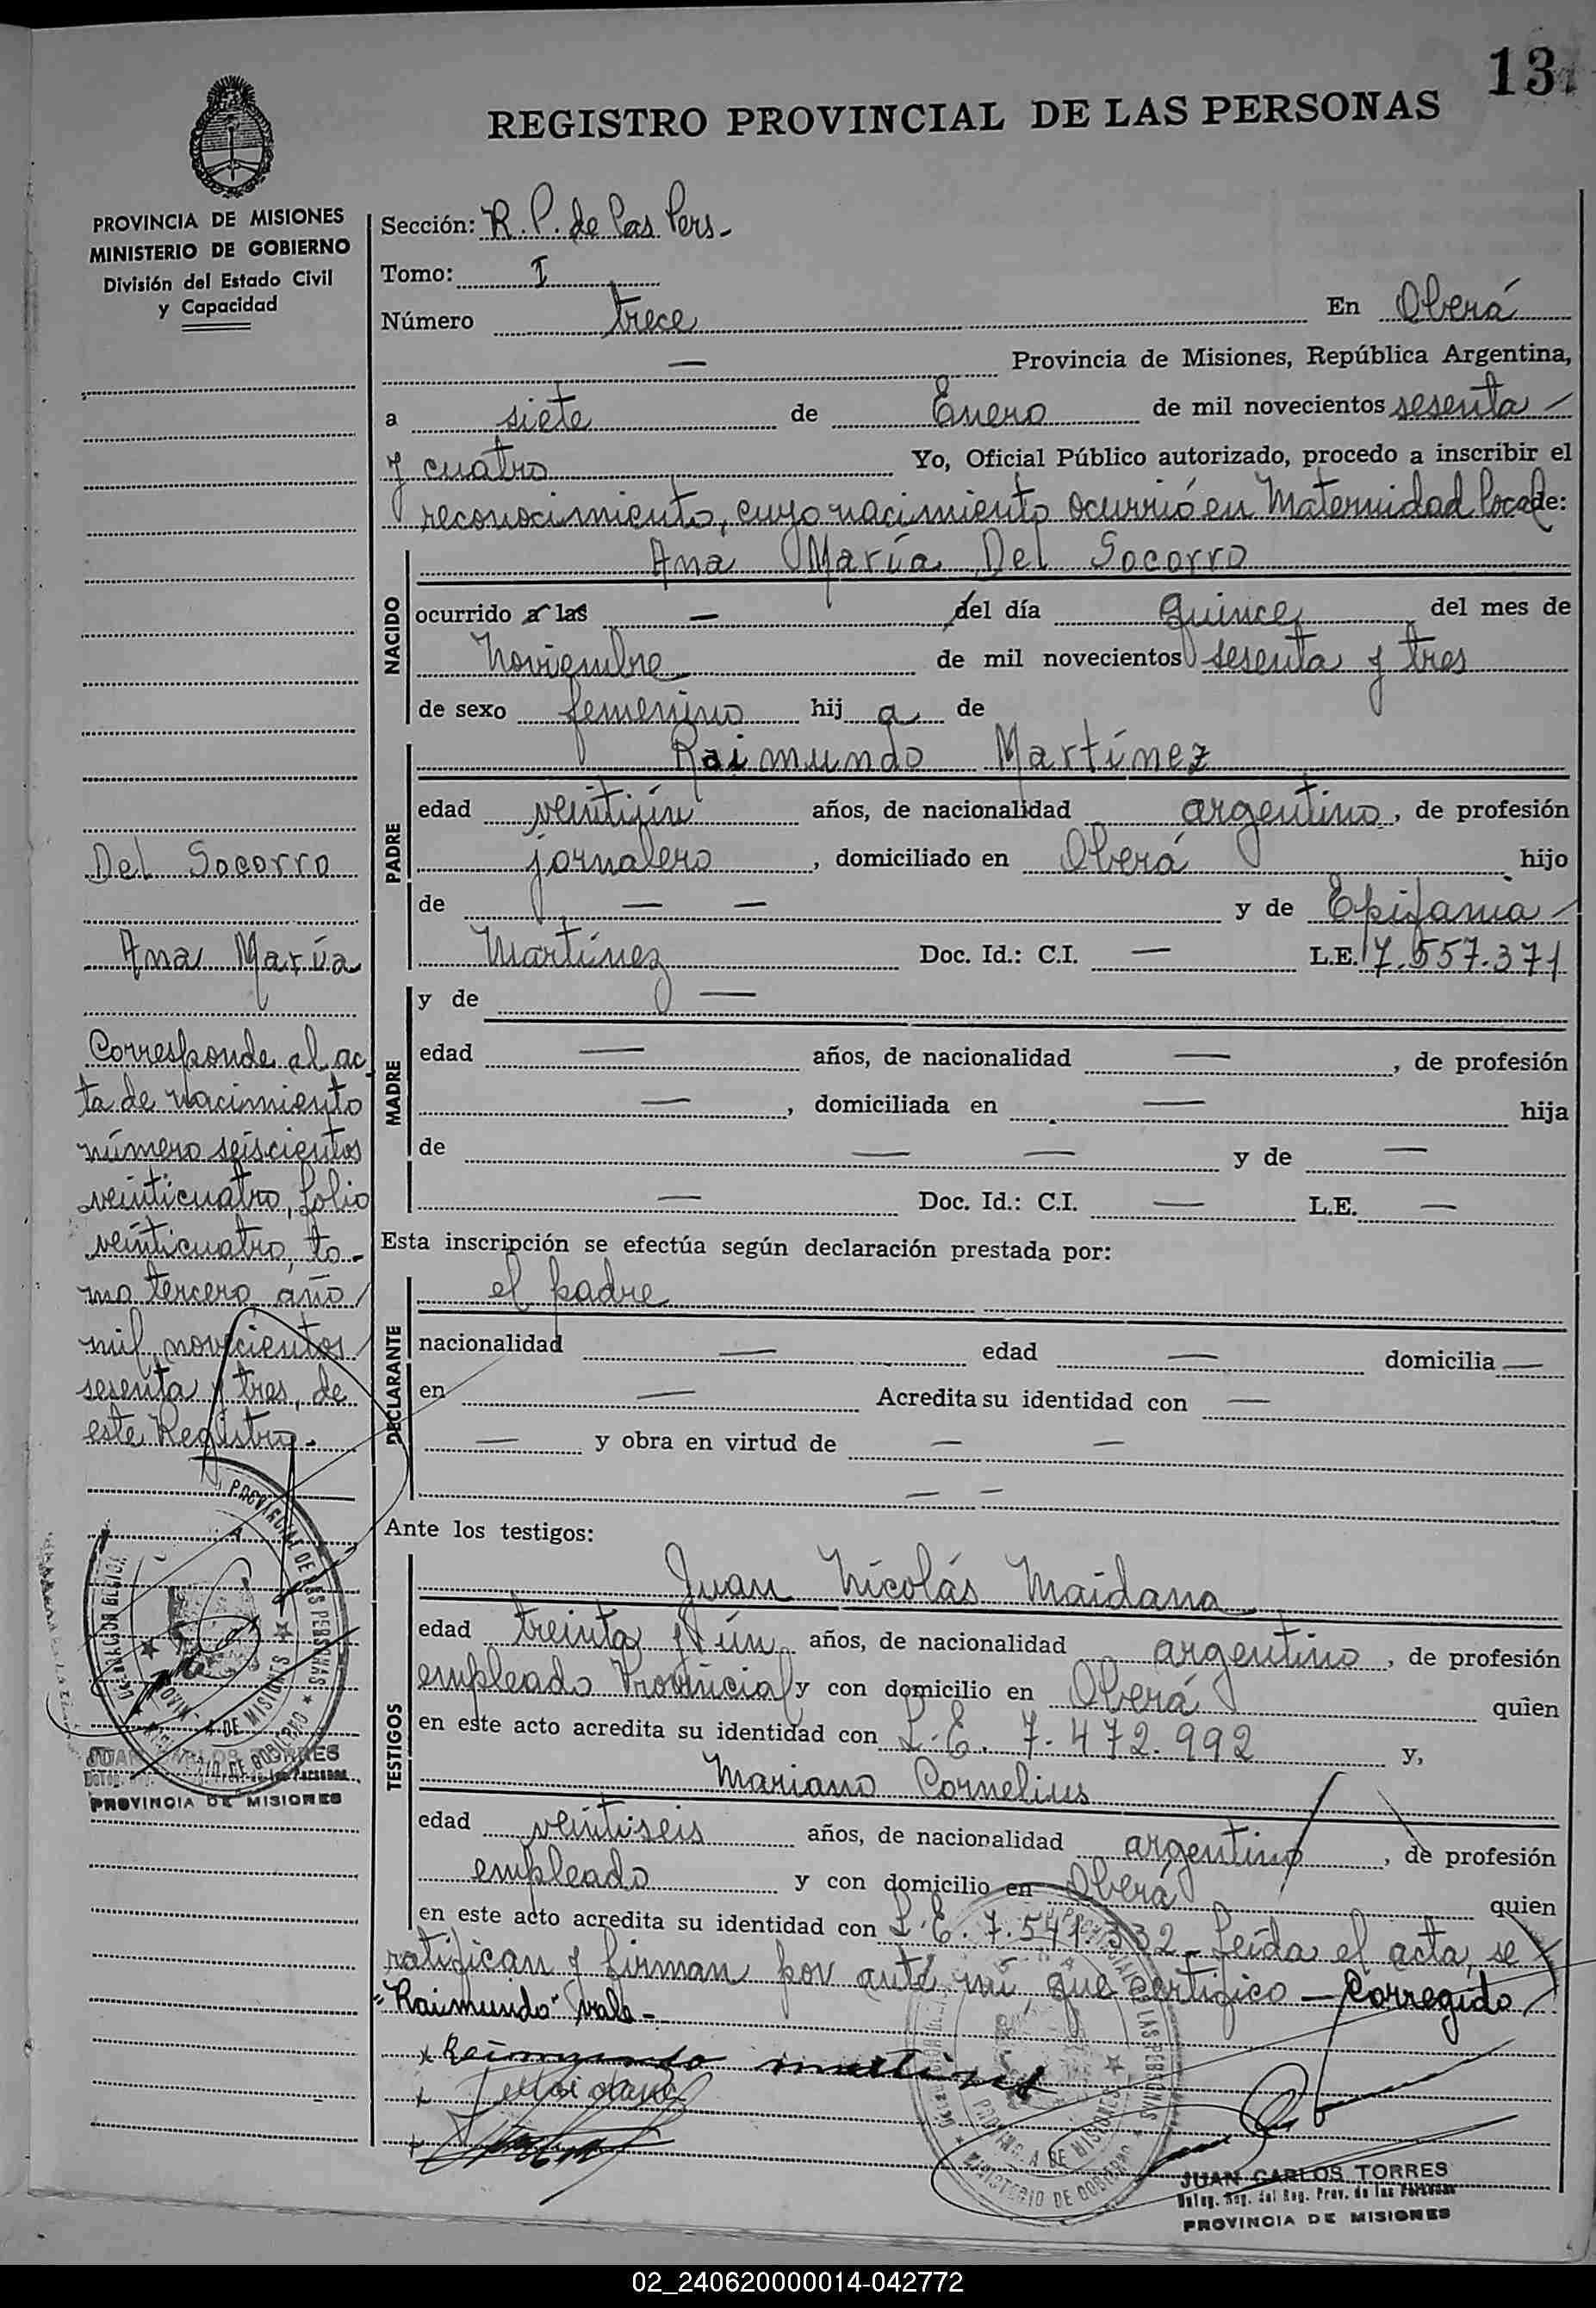 13
REGISTRO PROVINCIAL DE LAS PERSONAS
PROVINCIA DE MISIONES
MINISTERIO DE GOBIERNO
División del Estado Civil
y Capacidad
Del Socorro
Ana María
Corresponde al ac-
ta de nacimiento
número seiscientos
veinticuatro, folio
veinticuatro, to-
mo tercero, año
mil novecientos
sesenta y tres, de
este Registro.-
PROVINCIAL DE LAS PERSONAS
MINISTERIO DE GOBIERNO
DE MISIONES
PROVINCIA DE MISIONES
Sección: R. P. de las Pers-
Tomo: I
Número trece En Oberá
— Provincia de Misiones, República Argentina,
a siete de Enero de mil novecientos sesenta —
y cuatro Yo, Oficial Público autorizado, procedo a inscribir el
reconocimiento, cuyo nacimiento ocurrió en Maternidad local de:
NACIDO
Ana María Del Socorro
ocurrido a las — del día quince del mes de
Noviembre de mil novecientos sesenta y tres
de sexo femenino hij a de
PADRE
Raimundo Martínez
edad veintiún años, de nacionalidad argentino, de profesión
jornalero, domiciliado en Oberá hijo
de — — y de Epifania —
Martínez Doc. Id.: C.I. — L.E. 7.557.371
MADRE
y de —
edad — años, de nacionalidad —, de profesión
—, domiciliada en — hija
de — — y de —
— Doc. Id.: C.I. — L.E. —
Esta inscripción se efectúa según declaración prestada por:
DECLARANTE
el padre
nacionalidad — edad — domicilia —
en — Acredita su identidad con —
— y obra en virtud de — —
— —
Ante los testigos:
TESTIGOS
Juan Nicolás Maidana
edad treinta y ún años, de nacionalidad argentino, de profesión
empleado Provincial y con domicilio en Oberá quien
en este acto acredita su identidad con L.E. 7.472.992 y,
Mariano Cornelius
edad veintiseis años, de nacionalidad argentino, de profesión
empleado y con domicilio en Oberá quien
en este acto acredita su identidad con L.E. 7.541.332- Leída el acta, se
ratifican y firman por ante mí que certifico — Corregido
"Raimundo" vale-
x Reimundo
x
x
PROVINCIA DE MISIONES
MINISTERIO DE GOBIERNO
JUAN CARLOS TORRES
Deleg. Reg. del Reg. Prov. de las Personas
PROVINCIA DE MISIONES
02_240620000014-042772